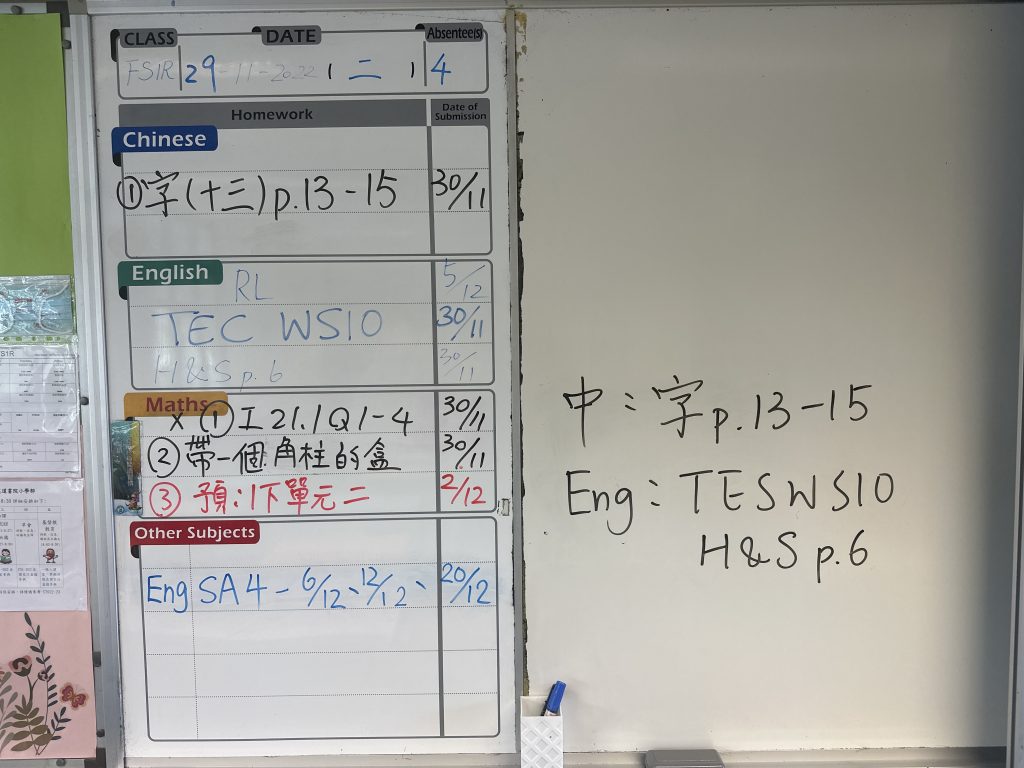 CLASS DATE Absentee(s)
FS1R 29-11-2022 (二) 4
Homework Date of Submission
Chinese
①字(十三)p.13-15 30/11
English
RL 5/12
TEC WS10 30/11
H&S p.6 30/11
Maths
X ① 工21.1 Q1-4 30/11
② 帶一個角柱的盒 30/11
③ 預:1下單元二 2/12
Other Subjects
Eng SA4 - 6/12、12/12、20/12
中:字p.13-15
Eng: TESWS10
H&S p.6